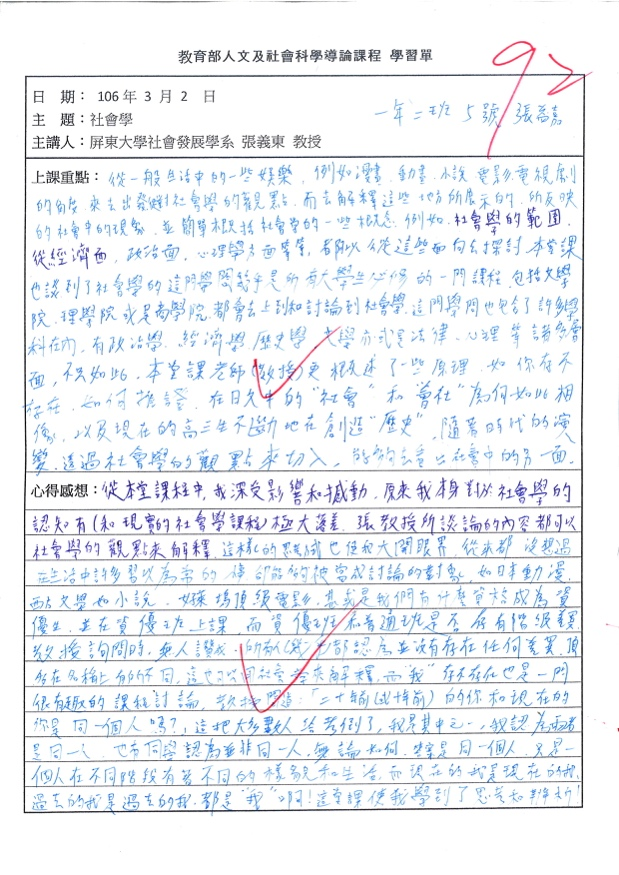 教育部人文及社會科學導論課程 學習單
92
日 期： 106 年 3 月 2 日
一年二班 5號 張嘉
主 題：社會學
主講人：屏東大學社會發展學系 張義東 教授
上課重點：從一般生活中的一些娛樂，例如漫畫、動畫、小說、電影、電視劇
的角度來去出發對社會學的觀點，而去解釋這些地方所展示的、所反映
的社會中的現象，並簡單概括社會學的一些概念，例如：社會學的範圍，
從經濟面、政治面、心理學方面等等，都可以從這些面向去探討。本堂課
也談到了社會學的這門學問幾乎是所有大學生必修的一門課程，包括文學
院、理學院或是商學院，都會去上到和討論到社會學，這門學問也包含了許多學
科在內，有政治學、經濟學、歷史學、文學方式、法律、心理等諸多層
面，不只如此，本堂課老師(教授)更概述了一些原理，如你存不
存在、如何推證，在日文中的“社會”和“會社”為何如此相
像，以及現在的高三生不斷地在創造“歷史”，隨著時代的演
變，透過社會學的觀點來切入，能夠去看出社會中的另一面。
心得感想：從本堂課程中，我深受影響和撼動，原來我本身對於社會學的
認知有(和現實的社會學課程)極大落差，張教授所談論的內容都可以
社會學的觀點來解釋，這樣的思維也使我大開眼界，從來都沒想過
在生活中許多習以為常的事情能夠被當成討論的對象，如日本動漫、
西方文學如小說、好萊塢頂級電影，甚或是我們有什麼資格成為資
優生，並在資優班上課，而資優班和普通班是否存有階級差異，
教授詢問時，無人讚成，所有人(我)都認為並沒有存在任何差異，頂
多在名稱上有的不同，這也可以用社會學來解釋，而“我”存不存在也是一門
很有趣的課程討論，教授問道：「二十年前(或十年前)的你和現在的
你是同一個人嗎?」，這把大多數人給考倒了，我是其中之一，我認為兩者
是同一人，也有同學認為並非同一人，無論如何，答案是同一個人，只是一
個人在不同階段有著不同的樣貌和生活，而現在的我是現在的我，
過去的我是過去的我，都是“我”啊！這堂課使我學到了思考和辨析！